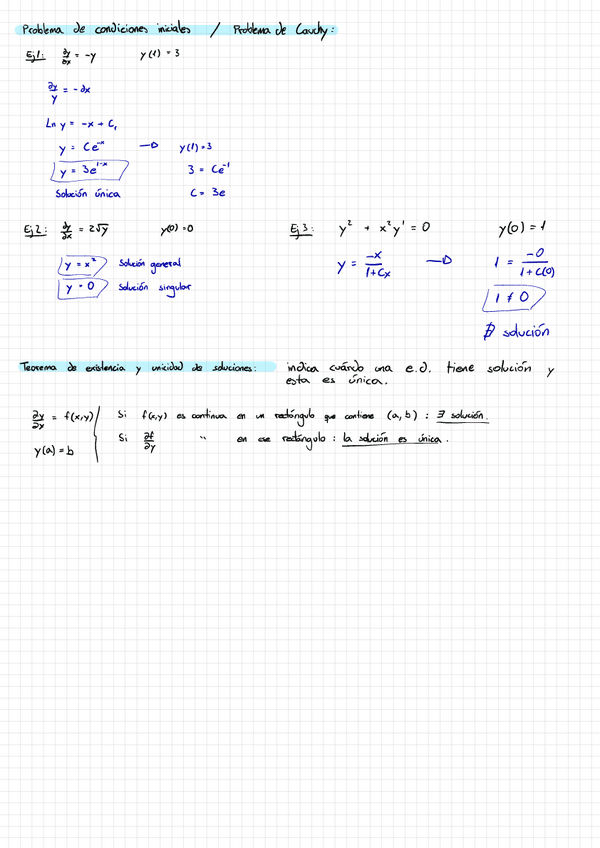 Problema de condiciones iniciales / Problema de Cauchy:
Ej1: ∂y/∂x = -y y(1) = 3
∂y/y = -∂x
Ln y = -x + C₁
y = Ce⁻ˣ → y(1) = 3
y = 3e¹⁻ˣ 3 = Ce⁻¹
Solución única C = 3e
Ej2: ∂y/∂x = 2√y y(0) = 0
y = x² Solución general
y = 0 Solución singular
Ej3: y² + x²y' = 0 y(0) = 1
y = -x/1+Cx → 1 = -0/1+C(0)
1 ≠ 0
∄ solución
Teorema de existencia y unicidad de soluciones: indica cuándo una e.d. tiene solución y
esta es única.
∂y/∂x = f(x,y) Si f(x,y) es continua en un rectángulo que contiene (a,b) : ∃ solución.
y(a) = b Si ∂f/∂y " en ese rectángulo : la solución es única.